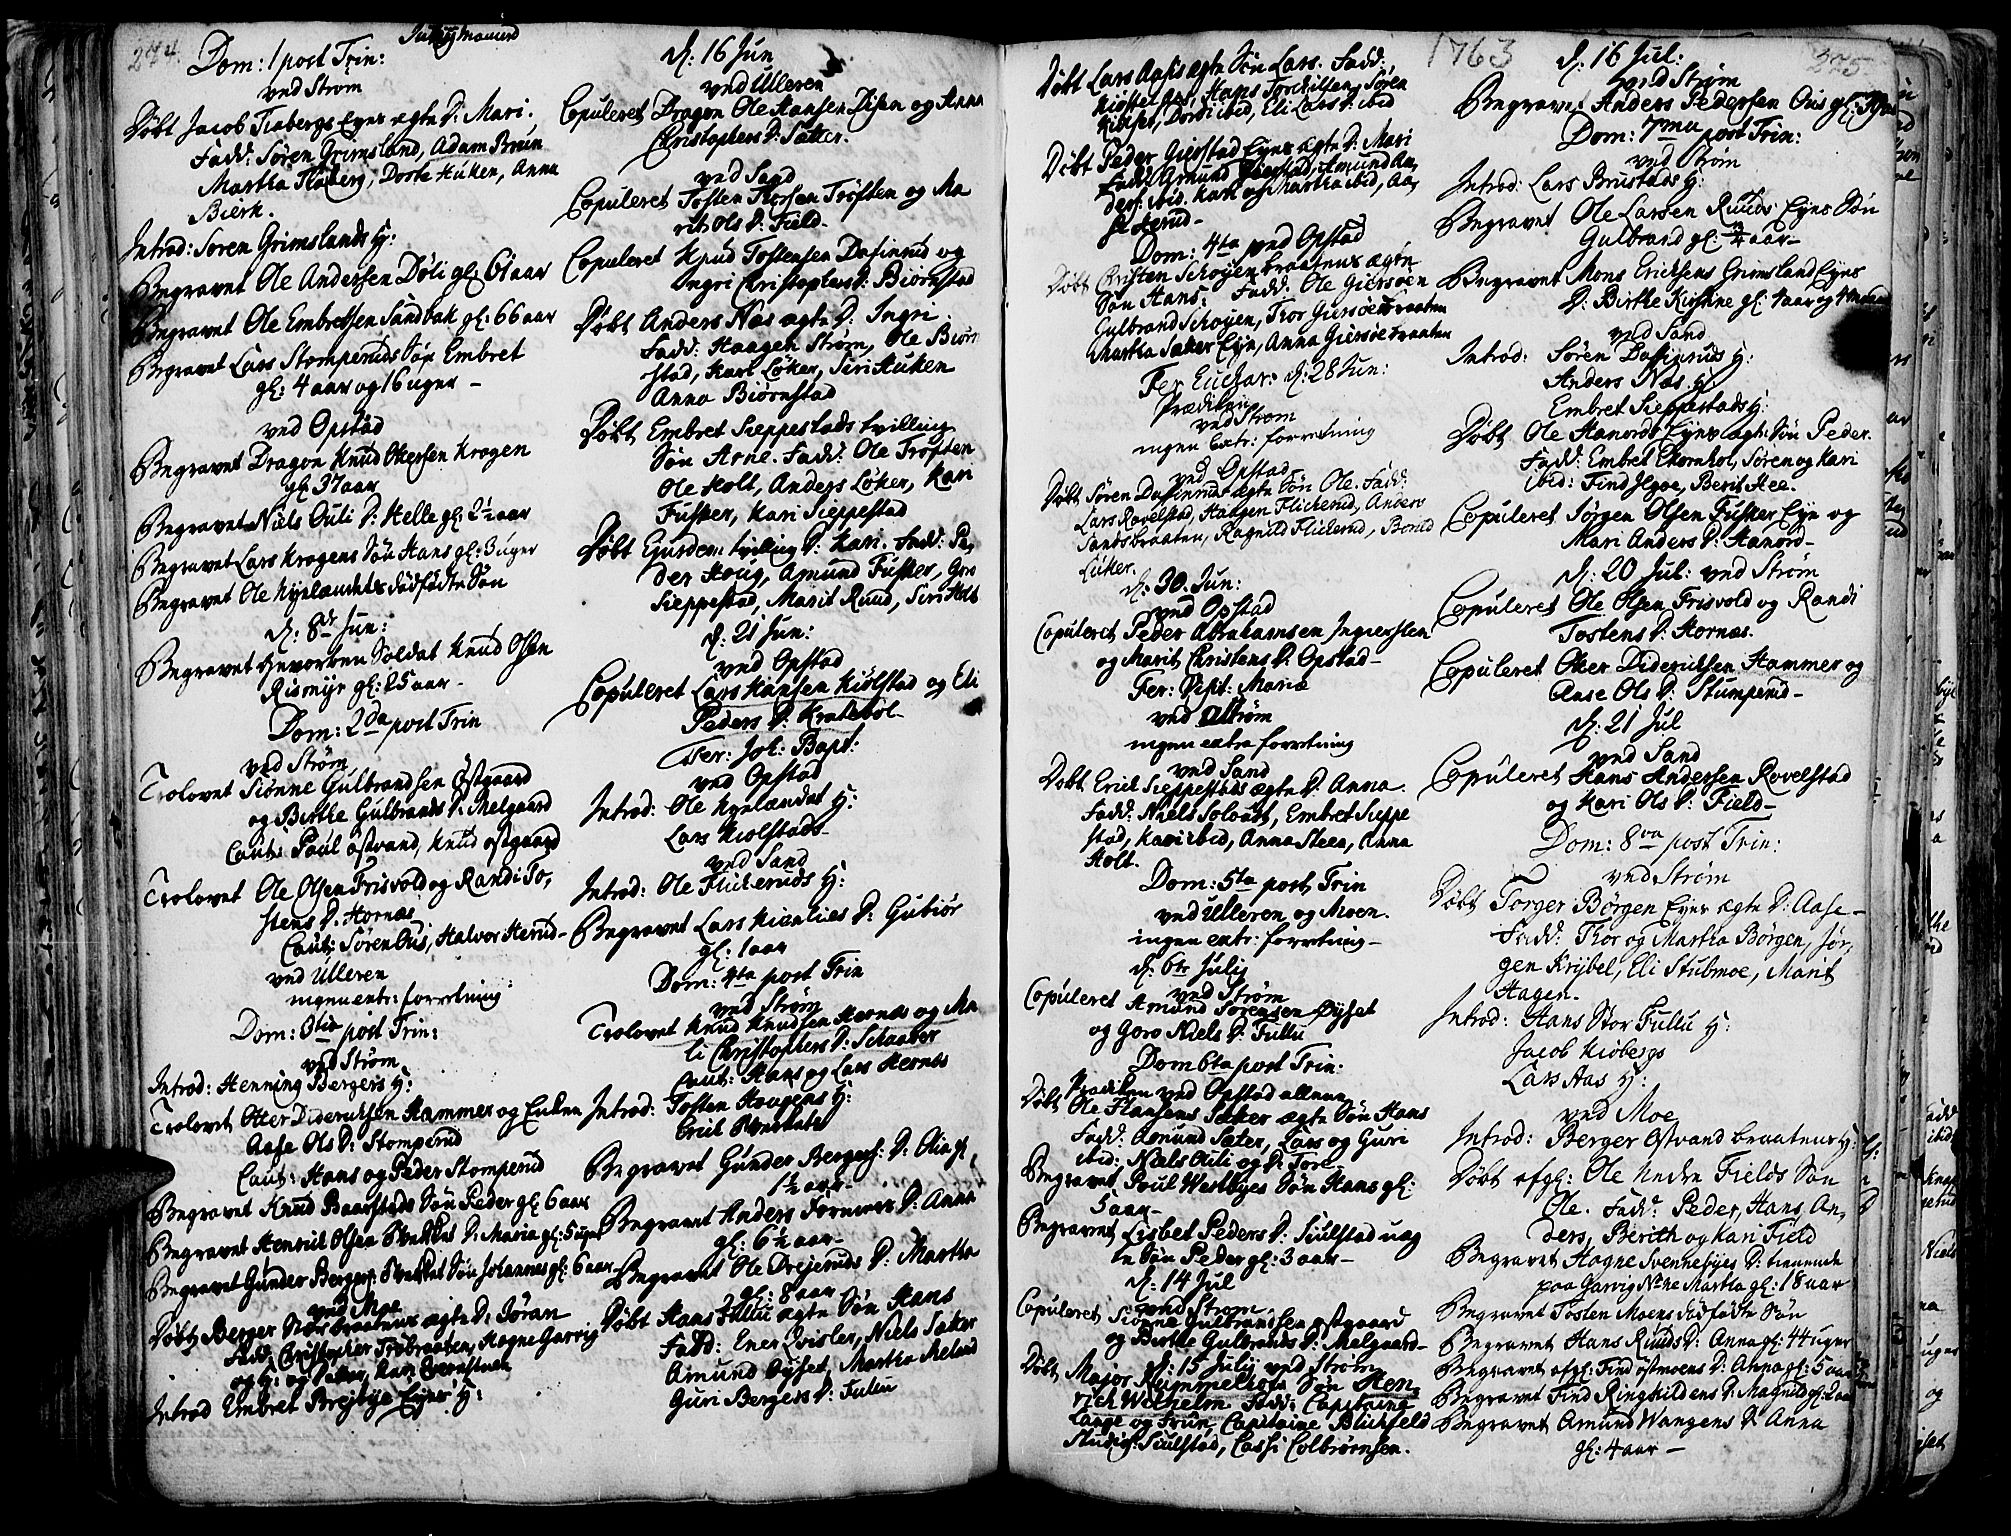 274.
Dom: 1 post Trin:
ved Strøm
Døbt Jacob Tiabergs Eyes ægte D: Mari.
Fadd: Søren Grimsland, Adam Bruun
Martha Tiaberg, Dorte Huken, Anna
Bierk.
Introd: Søren Grimslands H:
Begravet Ole Andersen Døli gl: 61 aar
Begravet Ole Embretsen Sandbak gl: 66 aar
Begravet Lars Stomperuds Søn Embret
gl: 4 aar og 16 uger –
ved Opstad
Begravet Dragon Knud Ottersen Krogen
gl: 37 aar
Begravet Niels Ouli D: Helle gl: 2½ aar
Begravet Lars Krogens Søn Hans gl: 3 uger
Begravet Ole Nylændets dødfødte Søn
d: 8de Jun:
Begravet Soldat Knud Olsen
Rismyr gl: 25 aar –
Dom: 2da post Trin
ved Strøm
Trolovet Siønne Gulbrandsen Østgaard
og Birthe Gulbrands D: Melgaard
Caut: Poul Østvand, Knud Østgaard
Trolovet Ole Olsen Frisvold og Randi To,
stens D: Hornæs
Caut: Søren Ous, Halvor Herud –
ved Ulleren
ingen extr: forretning
Dom: 3tia post Trin:
ved Strøm
Introd: Henning Bergers H:
Trolovet Otter Dideriksen Hammer og Enken
Aase Ols D: Stomperud
Caut: Hans og Peder Stomperud
Begravet Knud Baarstads Søn Peder gl: 6 aar
Begravet Henrick Olsen D: Maria gl: 5 uger
Begravet Gunder Bergers Søn Johannes gl: 6 aar
ved Moe
Døbt Berger braatens ægte D: Jøran
Fadd: Christopher Trøbraaten, Hogne Garvig
og H: og Kari
Introd Embret Brejbye Eyes H:
d: 16 Jun
ved Ulleren
Copuleret Dragon Ole Hansen Disen og Anna
Christophers D: Sætter.
ved Sand
Copuleret Tosten Thorsen Trøften og Ma
rit Ols D: Field.
Copuleret Knud Tostensen Dafinrud og
Ingri Christophers D: Biørnstad
Døbt Anders Næs ægte D: Ingri.
Fadd: Haagen Strøm, Ole Biørn
stad, Kari Løken, Siri Huken
Anna Biørnstad
Døbt Embret Sieppestads tvilling
Søn Arne. Fadd: Ole Trøften
Ole Holt, Anders Løker, Kari
Fusker, Kari Sieppestad
Døbt Ejusdem tvilling D: Kari. Fadd: Pe,
der Houg, Amund Fusker, Goro
Sieppestad, Marit Ruud, Siri Holt
d: 21 Jun:
ved Opstad
Copuleret Lars Hansen Kiølstad og Eli
Peders D: Kratebøl
Fer: Joh: Bapt:
ved Opstad
Introd: Ole Nylændet H:
Lars Kiølstads
ved Sand
Introd: Ole Flickeruds H:
Begravet Lars D: Gubiør
gl: 1 aar
Dom: 4ta post Trin
ved Strøm
Trolovet Knud Knudsen Hernæs og Ma
li Christophers D: Schaaber
Caut: Hans og Lars Hernæs
Introd: Tosten Haugens H:
Erick
Begravet Gunder Bergers: D: Olia gl,
1½ aar –
Begravet Anders D: Anna
gl: 6½ aar –
Begravet Ole Drejeruds D: Martha
gl: 8 aar
Døbt Hans Fullu ægte Søn Hans
Fadd: Ener Qvisler, Niels Sæter
Amund Øyset, Martha Meland
Guri Bergers D: Fullu
1763
275.
Døbt Lars Aases ægte Søn Lars. Fadd:
Hans Torckilsen, Søren
Dordi ibid, Eli Lars D: ibid
Døbt Peder Gierstad Eyes ægte D: Mari
Fadd: Amund Gierstad, Amund An
ders: ibid. Kari og Martha ibid, Aa,
se
Dom: 4ta ved Opstad
Døbt Christen Schøyenbraatens ægte
Søn Hans. Fadd: Ole Giersøen
Gulbrand Schøyen, Thor Giersøebraaten
Martha Saker Eyn, Anna Giersøebraaten
Fer: Euchar: d: 28 Jun:
Prædiken
ved Strøm
ingen extr: forretning
ved Opstad
Døbt Søren Dafinruds ægte Søn Ole. Fadd:
Lars Rovelstad, Haagen Flickerud, Anders
Sandsbraaten, Ragnild Flickerud, Berild
Løker.
d: 30. Jun:
ved Opstad
Copuleret Peder Abrahamsen Ingierslen
og Marit Christens D: Opstad –
Fer: Visit: Mariæ
ved Strøm
ingen extra forretning
ved Sand
Døbt Erick Sieppestads ægte D: Anna.
Fadd: Niels Solvatt, Embret Sieppe
stad, Kari ibid, Anna Steen, Anna
Holt.
Dom: 5ta post Trin
ved Ulleren og Moen.
ingen extr: forretning –
d: 6te Julij
ved Strøm
Copuleret Amund Sørensen Øyset
og Goro Niels D: Fullu
Dom 6ta post Trin:
Prædiken ved Opstad allene
Døbt Ole Hansens Sæter ægte Søn Hans
Fadd: Amund Sæter, Lars og Guri
ibid: Niels Ouli og D: Tore.
Begravet Poul Westbyes Søn Hans gl:
5 aar –
Begravet Lisbet Peders D: Siulstad uæg
te Søn Peder gl: 3 aar –
d: 14 Jul
ved Strøm
Copuleret Siønne Gulbrandsen Østgaard
og Birthe Gulbrands D: Melgaard –
d: 15 Julij ved Strøm
Døbt Major Søn Hen,
rich Wilhelm Fadd: Capitaine
Lange og Fruen, Capitaine Blichfeld
Studios: Siulstad, Colbiørnsen.
d: 16 Jul:
ved Strøm
Begravet Anders Pedersen Ous gl:
Dom: 7ma post Trin:
ved Strøm
Introd: Lars Brustads H:
Begravet Ole Larsen Ruuds Eyes Søn
Gulbrand gl: ¾ aar –
Begravet Mons Ericksens Grimsland Eyes
D: Birthe Kirstine gl: 4 aar og
ved Sand
Introd: Søren Dafinruds H:
Anders Næs H:
Embret Sieppestads H:
Døbt Ole Hanords Eyes ægte Søn Peder.
Fadd: Embret Ekornhol, Søren og Kari
ibid: Find Berit Hee.
Copuleret Jørgen Olsen Fusker Eye og
Mari Anders D: Hanord –
d: 20 Jul: ved Strøm
Copuleret Ole Olsen Frisvold og Randi
Tostens D: Hornæs.
Copuleret Otter Didericksen Hammer og
Aase Ols D: Stumperud –
d: 21 Jul
ved Sand
Copuleret Hans Andersen Rovelstad
og Kari Ols D: Field –
Dom: 8va post Trin:
ved Strøm
Døbt Torger Børgen Eyes ægte D: Aase –
Fadd: Thor og Martha Børgen, Jør,
gen Krybel, Eli Stubmoe, Marit
Hagen.
Introd: Hans Stor Fullu H:
Jacob Kiøbergs
Lars Aas H:
ved Moe
Introd: Berger Østvand braatens H:
Døbt afgl: Ole nedre Fields Søn
Ole. Fadd: Peder, Hans, An,
ders, Berith og Kari Field
Begravet Hogne Svennebyes D: tienende
paa Garvig Martha gl: 18 aar
Begravet Tosten Moens dødfødte Søn
Begravet Hans Ruuds D: Anna gl: 44 uger
Begravet afgl: Find Østmoens D: Anna gl: 5 aar
Begravet Find Ringkildens D: Magnild gl: 2 aar
Begravet Amund Wangens D: Anna
gl: 4 aar –